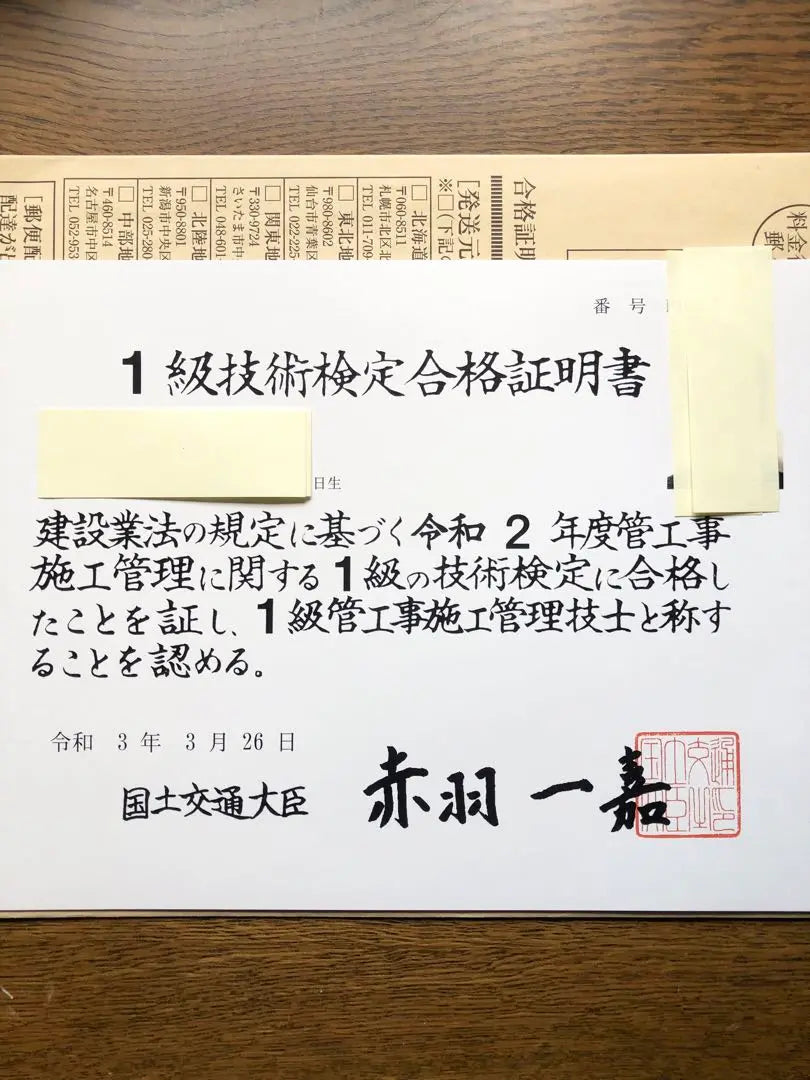 番号
1級技術検定合格証明書
日生
建設業法の規定に基づく令和2年度管工事
施工管理に関する1級の技術検定に合格し
たことを証し、1級管工事施工管理技士と称す
ることを認める。
令和 3 年 3 月 26 日
国土交通大臣 赤羽 一嘉
合格証明
[発送元
※□(下記の
□ 北海道
〒060-8511
札幌市北区北
TEL 011-709
□ 東北地
〒980-8602
仙台市青葉区
TEL 022-225
□ 関東地
〒330-9724
さいたま市中
TEL 048-601
□ 北陸地
〒950-8801
新潟市中央区
TEL 025-280
□ 中部地
〒460-8514
名古屋市中区
TEL 052-953
[郵便配
配達が